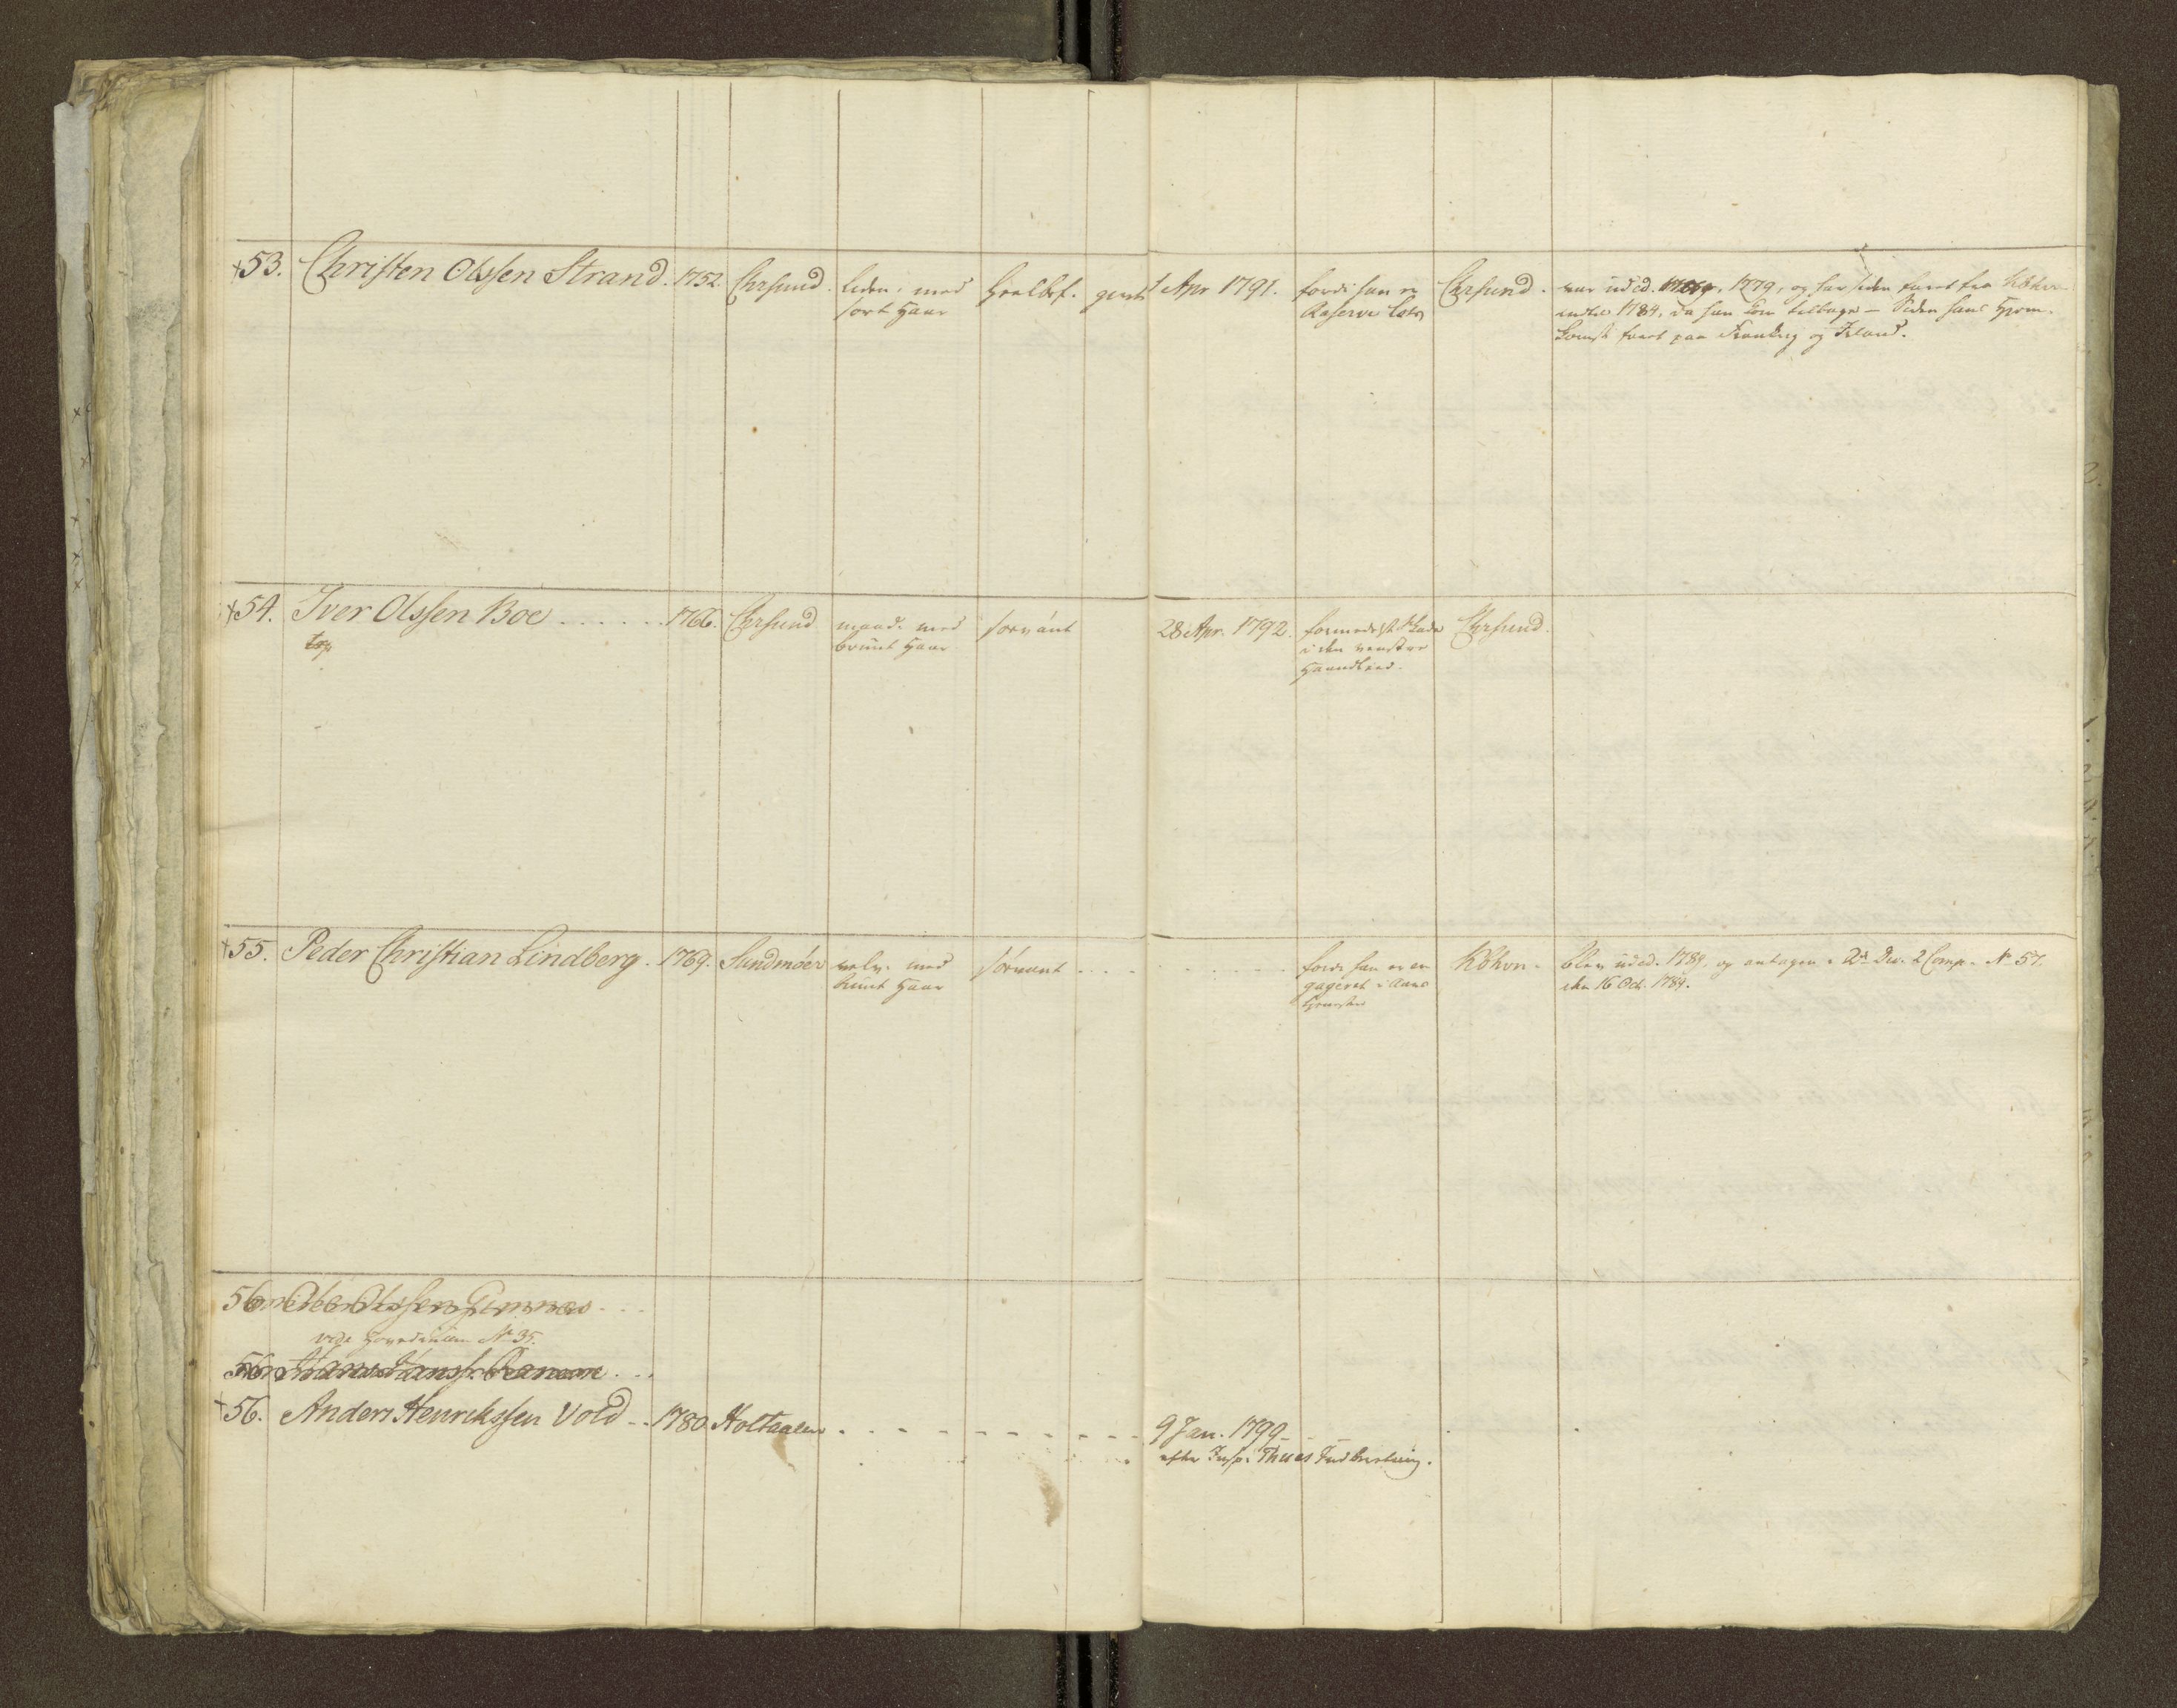 +53. Christen Olssen Strand. 1752. Chrsund. liden, med sort Haar Heelbef. givt 1 Apr 1791. fordi han er Reserve Lods Chrsund. var uded. 1779, og har siden faret fra Kbhvn
indtil 1784, da han kom tilbage — Siden hans Hjem-
komst faret paa Frankrig og Irland.
+54. Iver Olssen Boe . . . . . . 1766. Chrsund maad. med brunt Haar servant 28 Apr. 1792. formedelst Skade i den venstre Haandled. Chrsund.
+55. Peder Christian Lindberg. 1769. Sundmöer velv. med brunt Haar servant . . . . fordi han er en gageret i Aars tjeneste Kbhvn. blev uded. 1789. og antagen i 2d Div. 2 Comp. No 57.
den 16 Oct. 1789.
56.
vide Hovedrullen No 35.
56. Hans Hanss.
+56. Anders Henrikssen Vold - . 1780. Holtaalen . - - - - - - - - 9 Jan. 1799 -
efter Insp. Thues Indberetning.